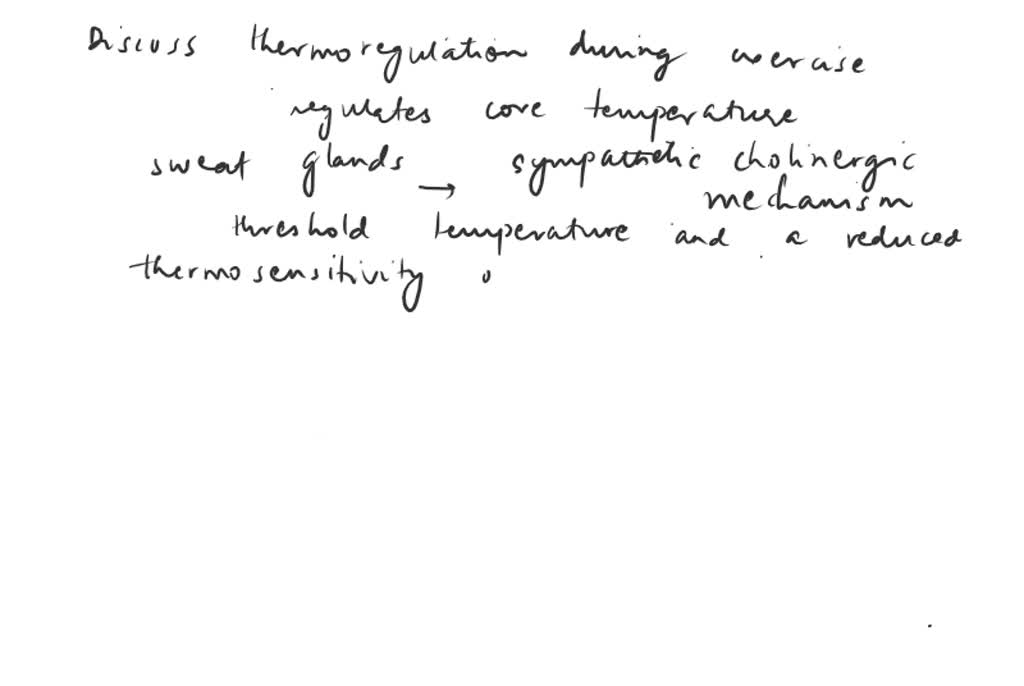 Discuss thermoregulation during exercise
regulates core temperature
sweat glands → sympathetic cholinergic
mechanism
threshold temperature and a reduced
thermosensitivity o